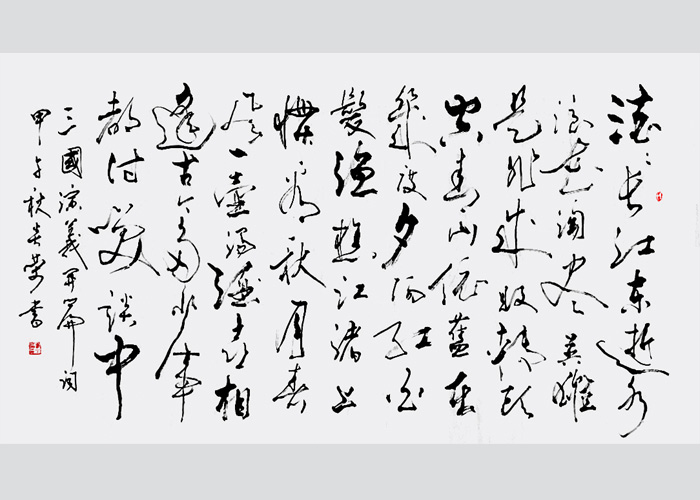 滚〻長江東逝水
浪花淘尽英雄
是非成敗轉頭
空青山依舊在
幾度夕陽紅白
髮漁樵江渚上
慣看秋月春
風一壺濁酒喜相
逢古今多少事
都付笑談中
三國演義开篇词
甲午秋吉荣书